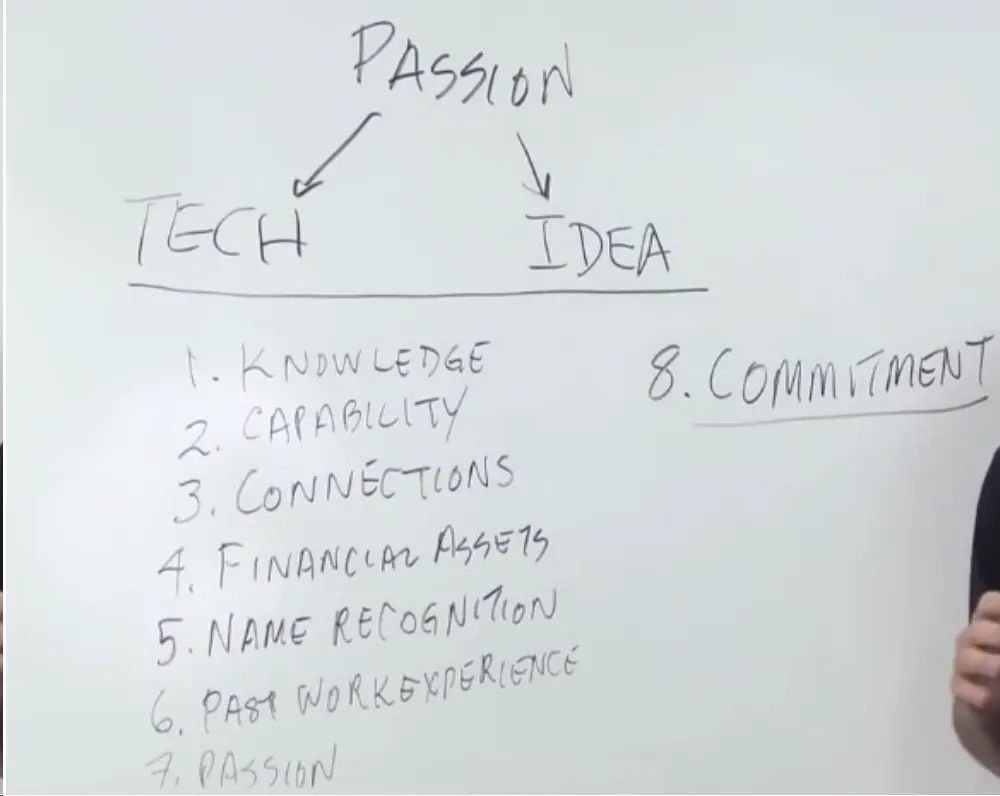 PASSION
TECH IDEA
1. KNOWLEDGE
2. CAPABILITY
3. CONNECTIONS
4. FINANCIAL ASSETS
5. NAME RECOGNITION
6. PAST WORK EXPERIENCE
7. PASSION
8. COMMITMENT